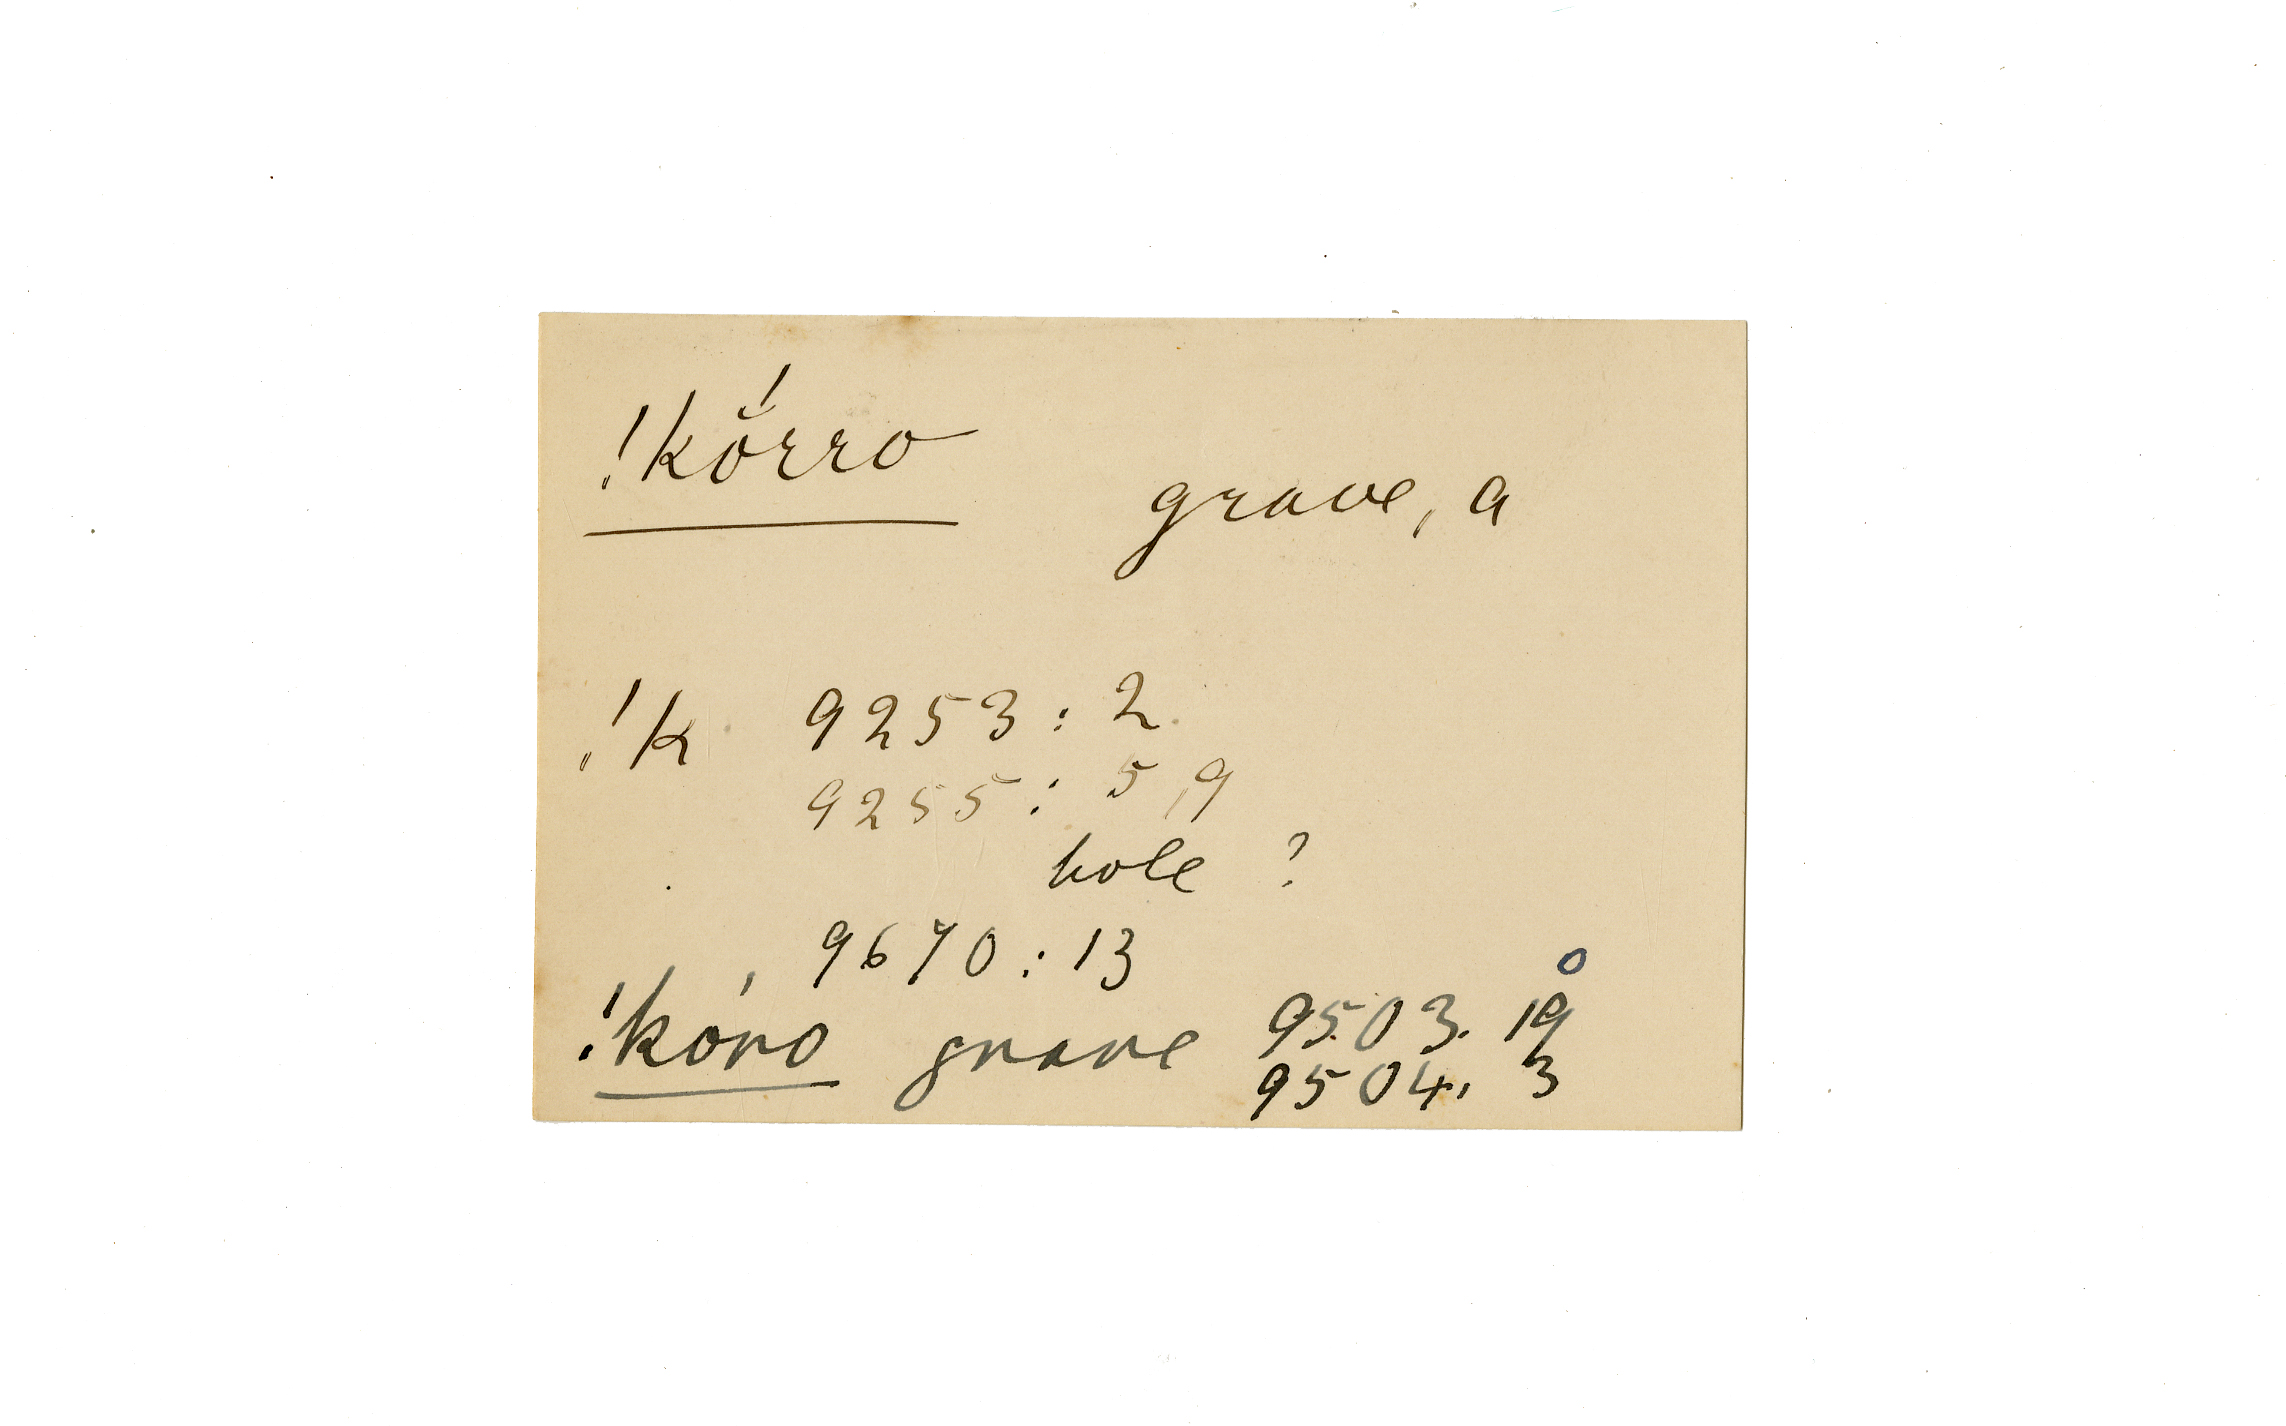 !kŏ́rro
grave, a
!k 9253 : 2
9255 : 5, 9
hole ?
9670 : 13
!kóro grave 9503. 19
9504. 3